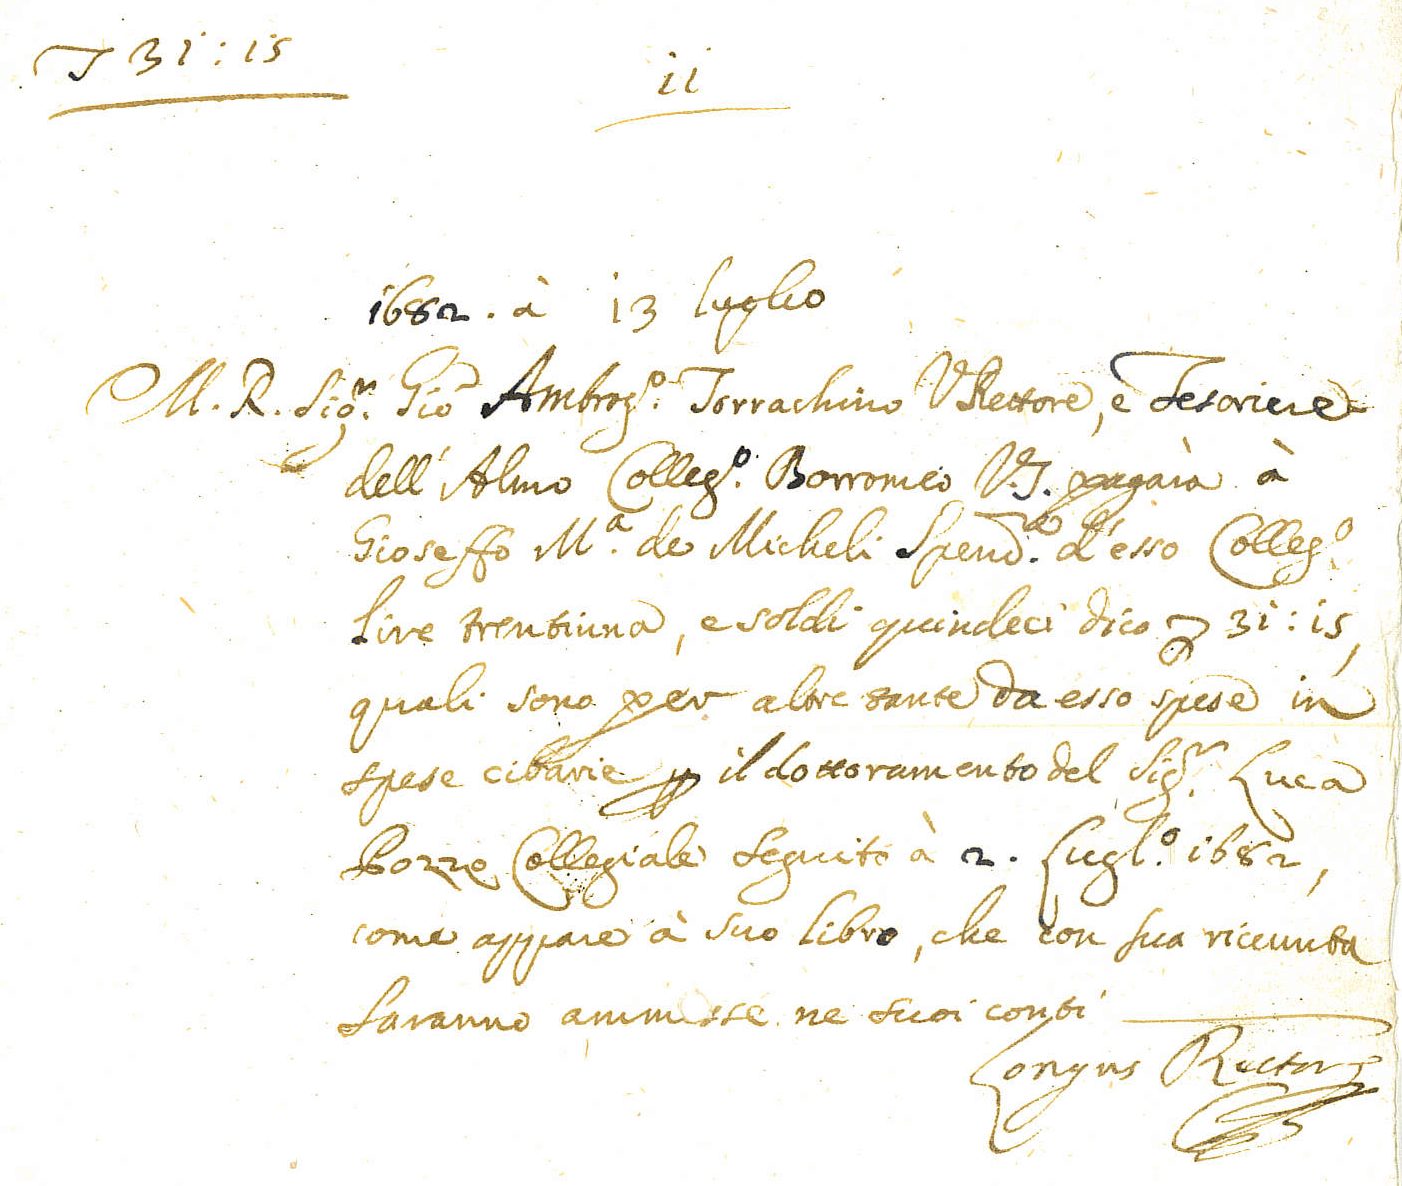 31:15
11
1682. à 13 luglio
M. R. Sig.r Gio Ambrog.o Torrachino V Rettore, e Tesoriere
dell'Almo Colleg.o Borromeo V.S. pagarà à
Gioseffo M.a de Micheli Spend.e d'esso Colleg.o
Lire trentiuna, e soldi quindeci dico 31:15,
quali sono per altre tante da esso spese in
spese cibarie p il dottoramento del Sig.r Luca
Pozzo Collegiale seguito à 2. Lugl.o 1682,
come appare à suo libro, che con sua riceuuta
saranno ammesse ne suoi conti
Longus Rector